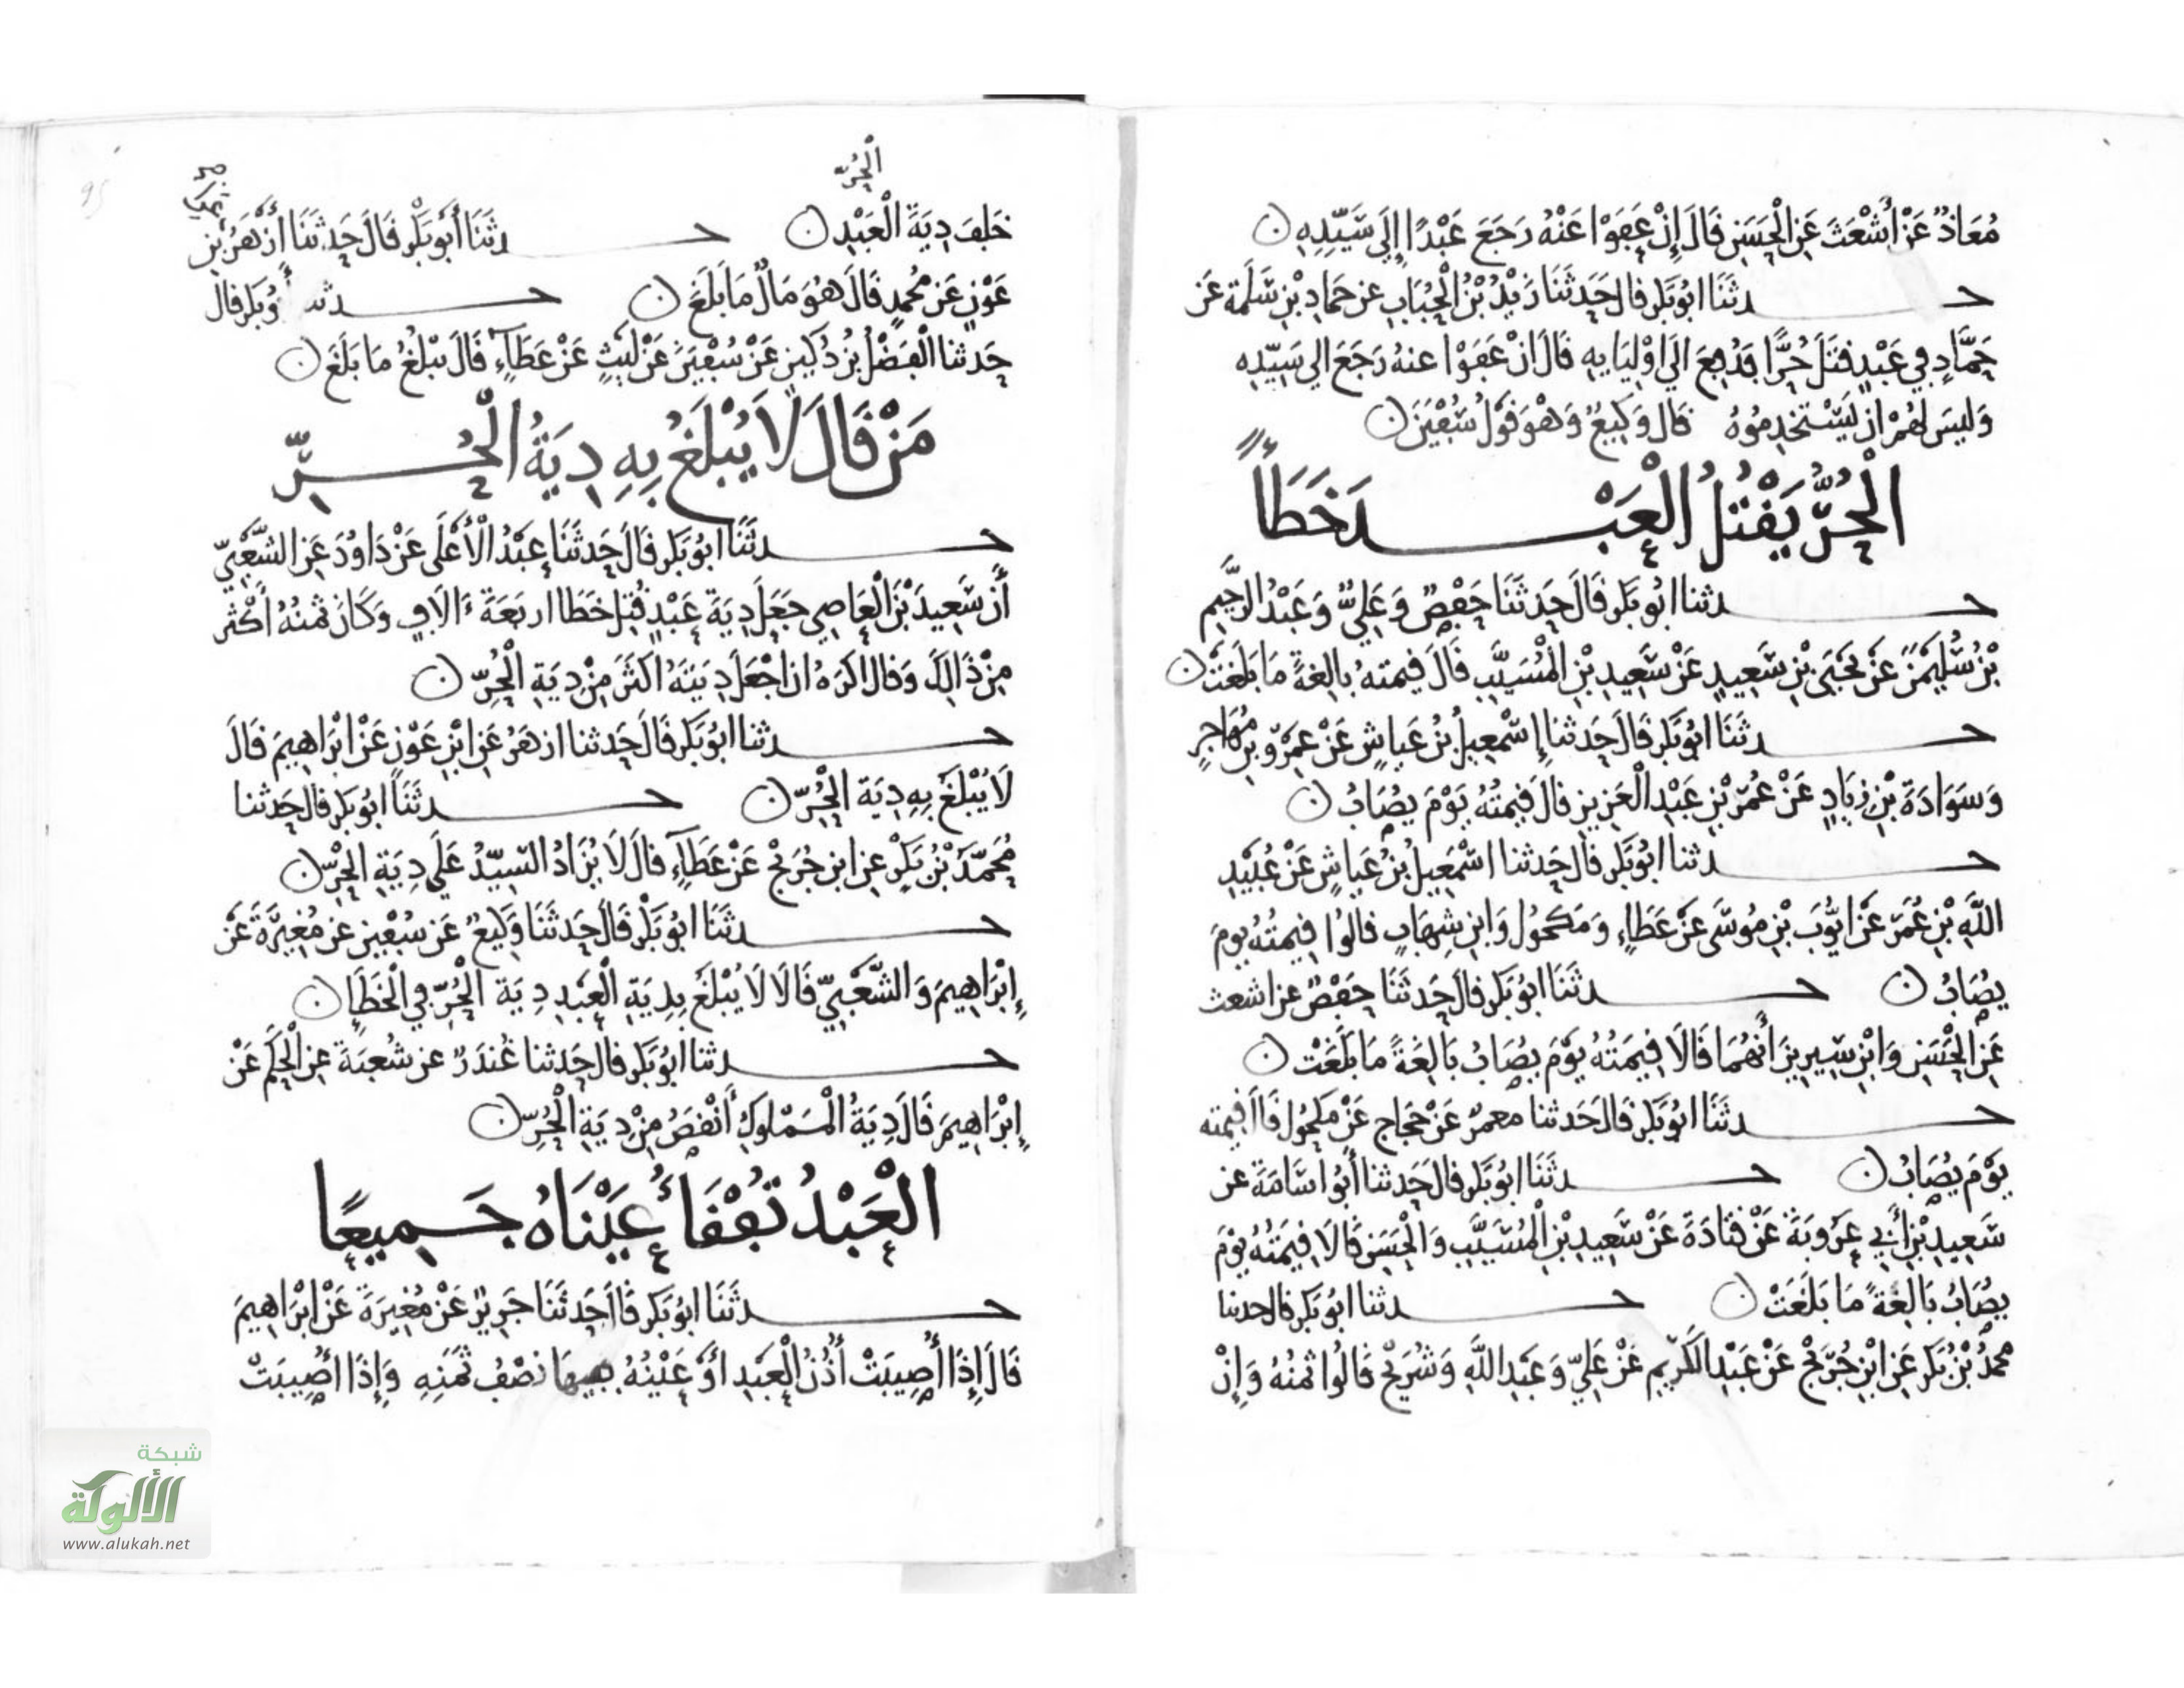 مُعَاذٌ عَنْ أَشْعَثَ عَنِ الْحَسَنِ قَالَ إِنْ عَفَوْا عَنْهُ رَجَعَ عَبْدًا إِلَى سَيِّدِهِ ن
حدثنا ابو بكر قال حدثنا زيد بن الحباب عن حماد بن سلمة عن
حماد في عبد قتل حرا فدفع الى اوليايه قال ان عفوا عنه رجع الى سيده
وليس لهم ان يستخدموه قال وكيع وهو قول سفين ن
الْحُرُّ يَقْتُلُ الْعَبْدَ خَطَأً
حدثنا ابو بكر قال حدثنا حفص وعلي وعبد الرحيم
بن سليمن عن يحيى بن سعيد عن سعيد بن المسيب قال قيمته بالغة ما بلغت ن
حدثنا ابو بكر قال حدثنا إسمعيل بن عياش عن عمرو بن مهاجر
وسوادة بن زياد عن عمر بن عبد العزيز قال قيمته يوم يصاب ن
حدثنا ابو بكر قال حدثنا اسمعيل بن عياش عن عبيد
الله بن عمر عن ايوب بن موسى عن عطاء ومكحول وابن شهاب قالوا قيمته يوم
يصاب ن حدثنا ابو بكر قال حدثنا حفص عن اشعث
عن الحسن وابن سيرين أنهما قالا قيمته يوم يصاب بالغة ما بلغت ن
حدثنا ابو بكر قال حدثنا معمر عن حجاج عن مكحول قال قيمته
يوم يصاب ن حدثنا ابو بكر قال حدثنا أبو اسامة عن
سعيد بن أبي عروبة عن قتادة عن سعيد بن المسيب والحسن قالا قيمته يوم
يصاب بالغة ما بلغت ن حدثنا ابو بكر قال حدثنا
محمد بن بكر عن ابن جريج عن عبد الكريم عن علي وعبد الله وشريح قالوا ثمنه وإن
الحرّ
خلف دية العبد ن حدثنا أبو بكر قال حدثنا أزهر بن
عون عن محمد قال هو مال ما بلغ ن حدثنا أبو بكر قال
حدثنا الفضل بن دكين عن سفين عن ليث عن عطآء قال يبلغ ما بلغ ن
مَنْ قَالَ لَا يُبْلَغُ بِهِ دِيَةُ الْحُرِّ
حدثنا ابو بكر قال حدثنا عبد الأعلى عن داود عن الشعبي
أن سعيد بن العاصي جعل دية عبد قتل خطا اربعة ءالاف وكان ثمنه أكثر
من ذالك وقال اكره ان اجعل ديته اكثر من دية الحر ن
حدثنا ابو بكر قال حدثنا ازهر عن ابن عون عن ابراهيم قال
لا يبلغ به دية الحر ن حدثنا ابو بكر قال حدثنا
محمد بن بكر عن ابن جريج عن عطآء قال لا يزاد السيد على دية الحر ن
حدثنا ابو بكر قال حدثنا وكيع عن سفين عن مغيرة عن
إبراهيم والشعبي قالا لا يبلغ بدية العبد دية الحر في الخطإ ن
حدثنا ابو بكر قال حدثنا غندر عن شعبة عن الحكم عن
إبراهيم قال دية المملوك أنقص من دية الحر ن
الْعَبْدُ تُفْقَأُ عَيْنَاهُ جَمِيعًا
حدثنا ابو بكر قال حدثنا جرير عن مغيرة عن ابراهيم
قال إذا أصيبت أذن العبد أو عينه ففيها نصف ثمنه وإذا أصيبت
شبكة
الألوكة
www.alukah.net